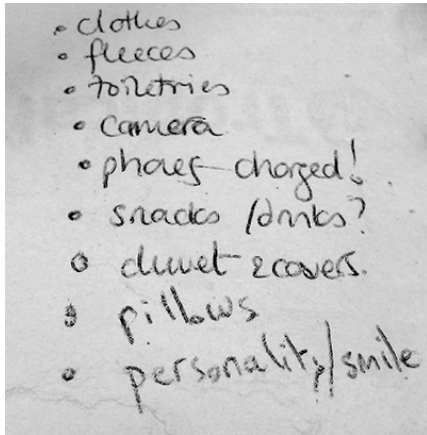 • clothes
• fleeces
• toiletries
• camera
• phones - charged!
• snacks / drinks?
• duvet - 2 covers.
• pillows
• personality / smile